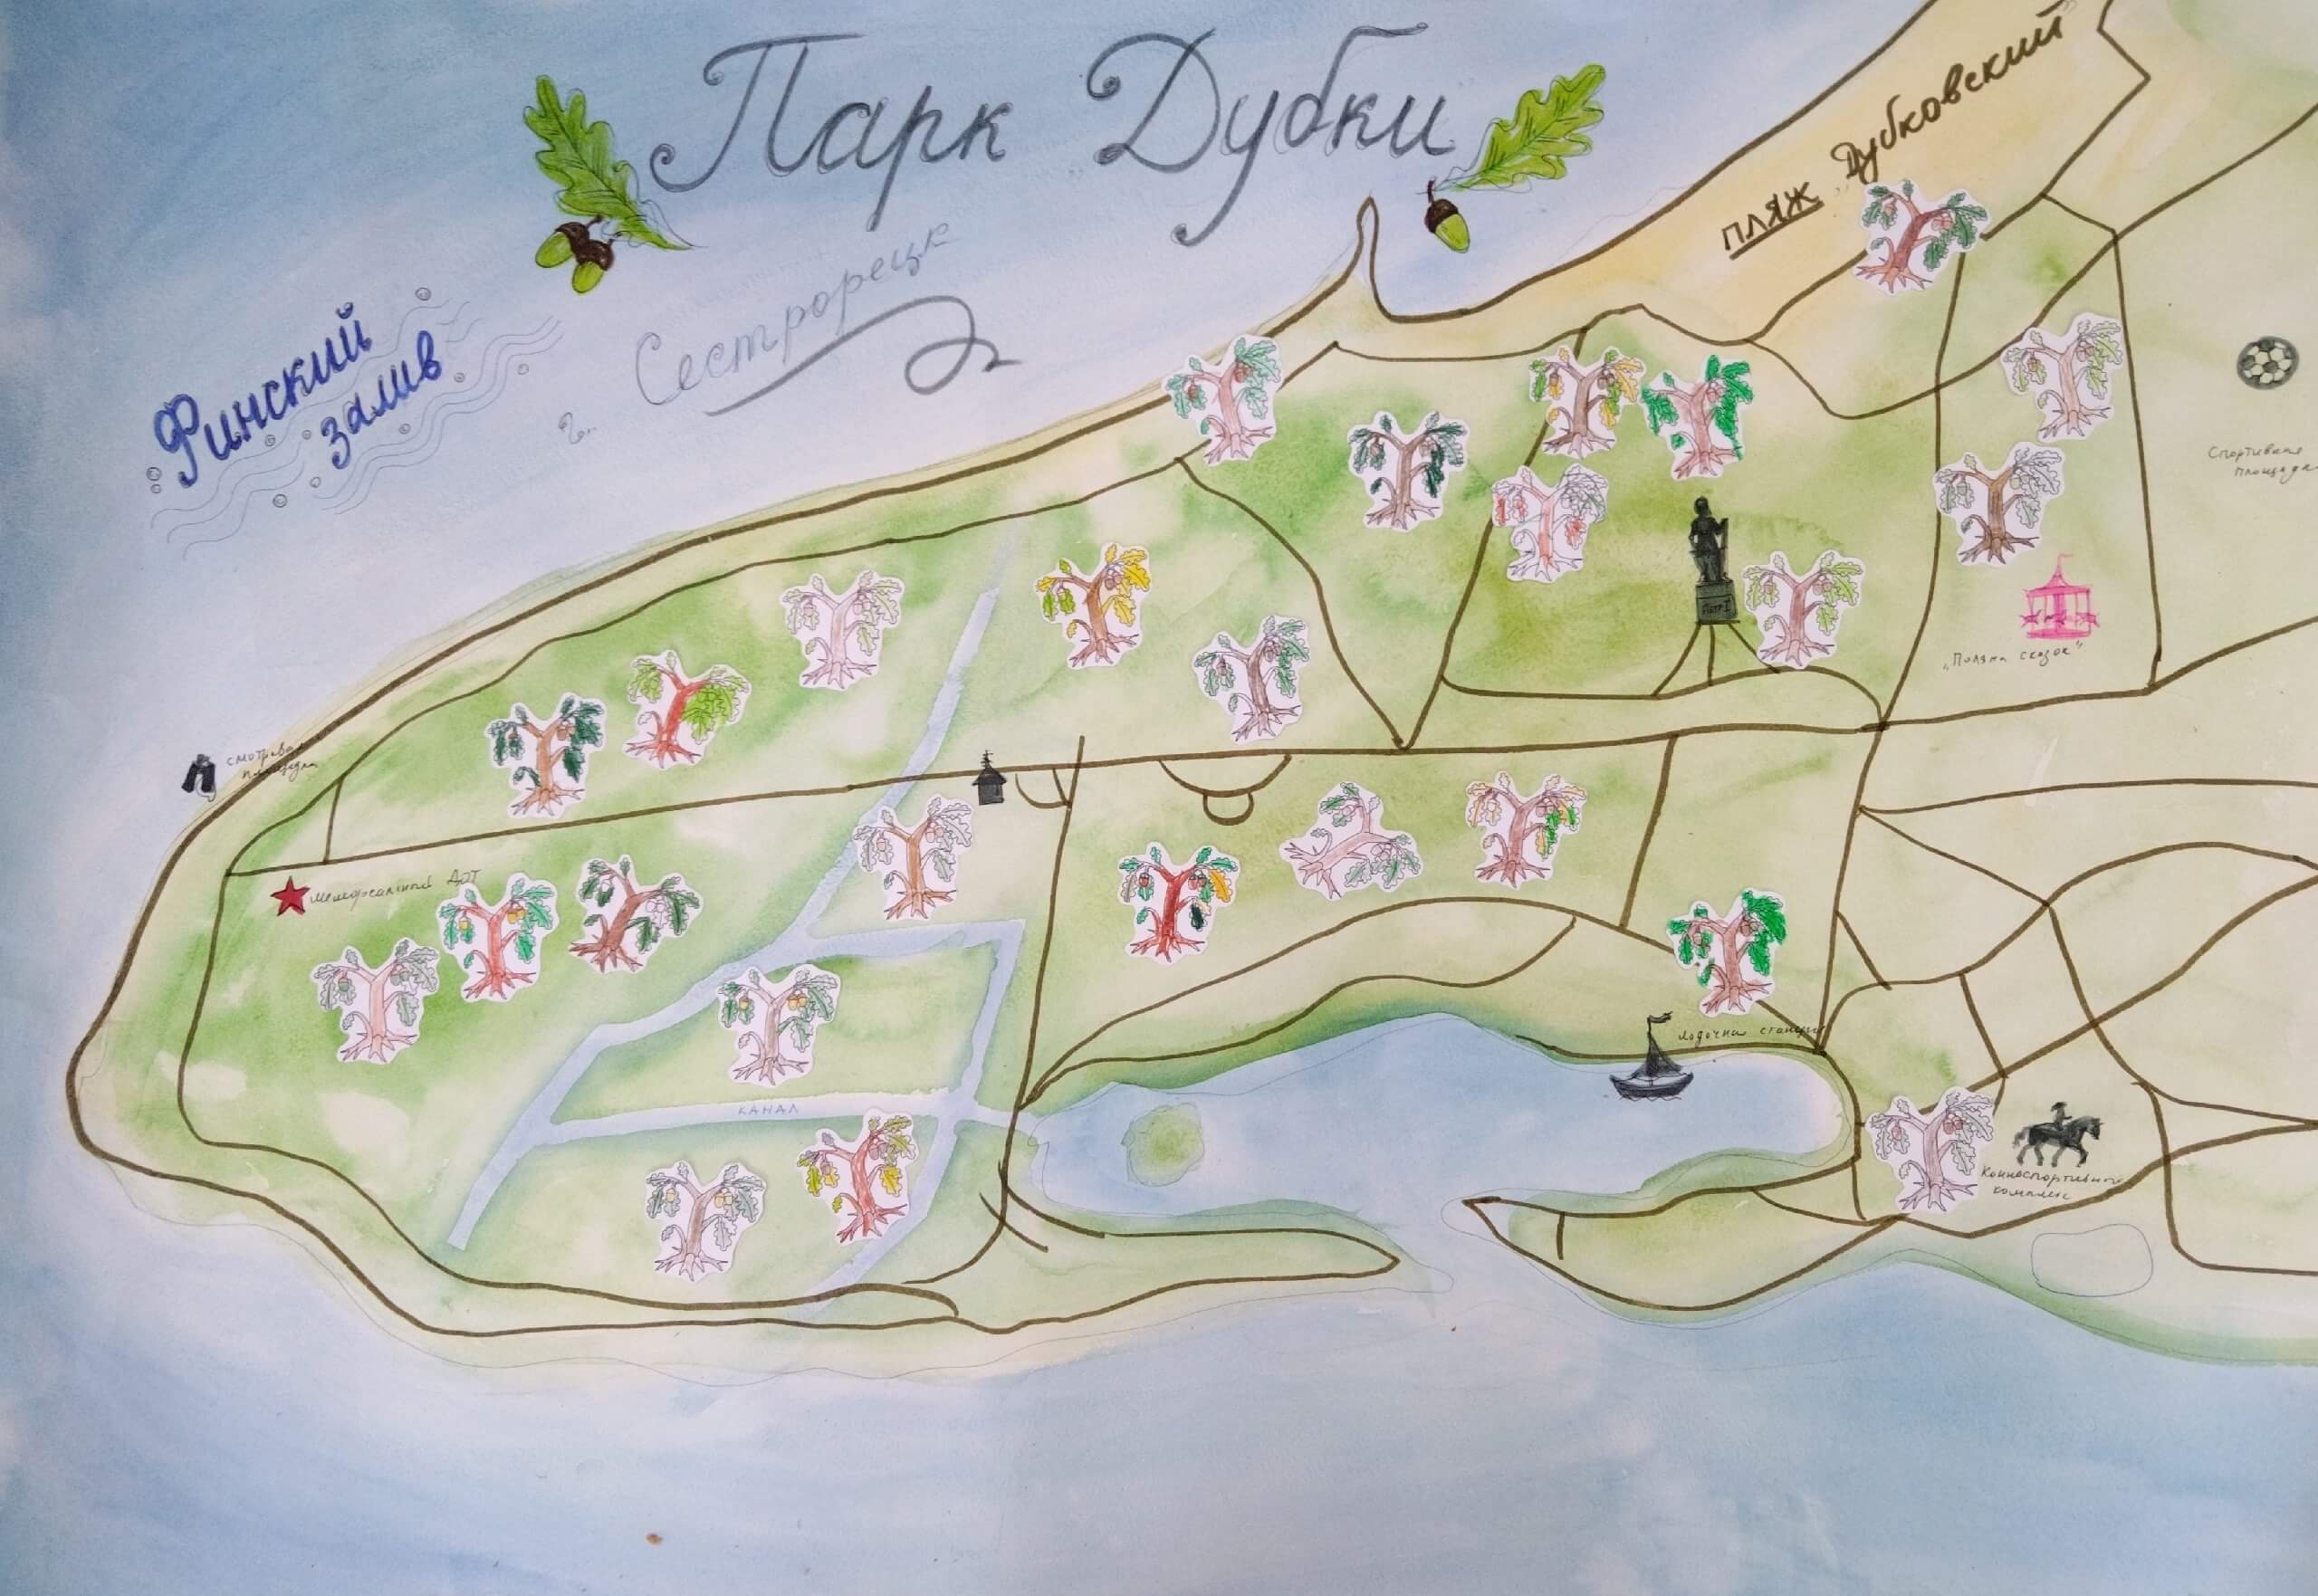 Парк Дубки
г. Сестрорецк
Финский
залив
пляж Дубковский
Спортивная
площадка
Петр I
„Поляна сказок"
смотровая
площадка
мемориальный ДОТ
лодочная станция
канал
Конноспортивный
комплекс